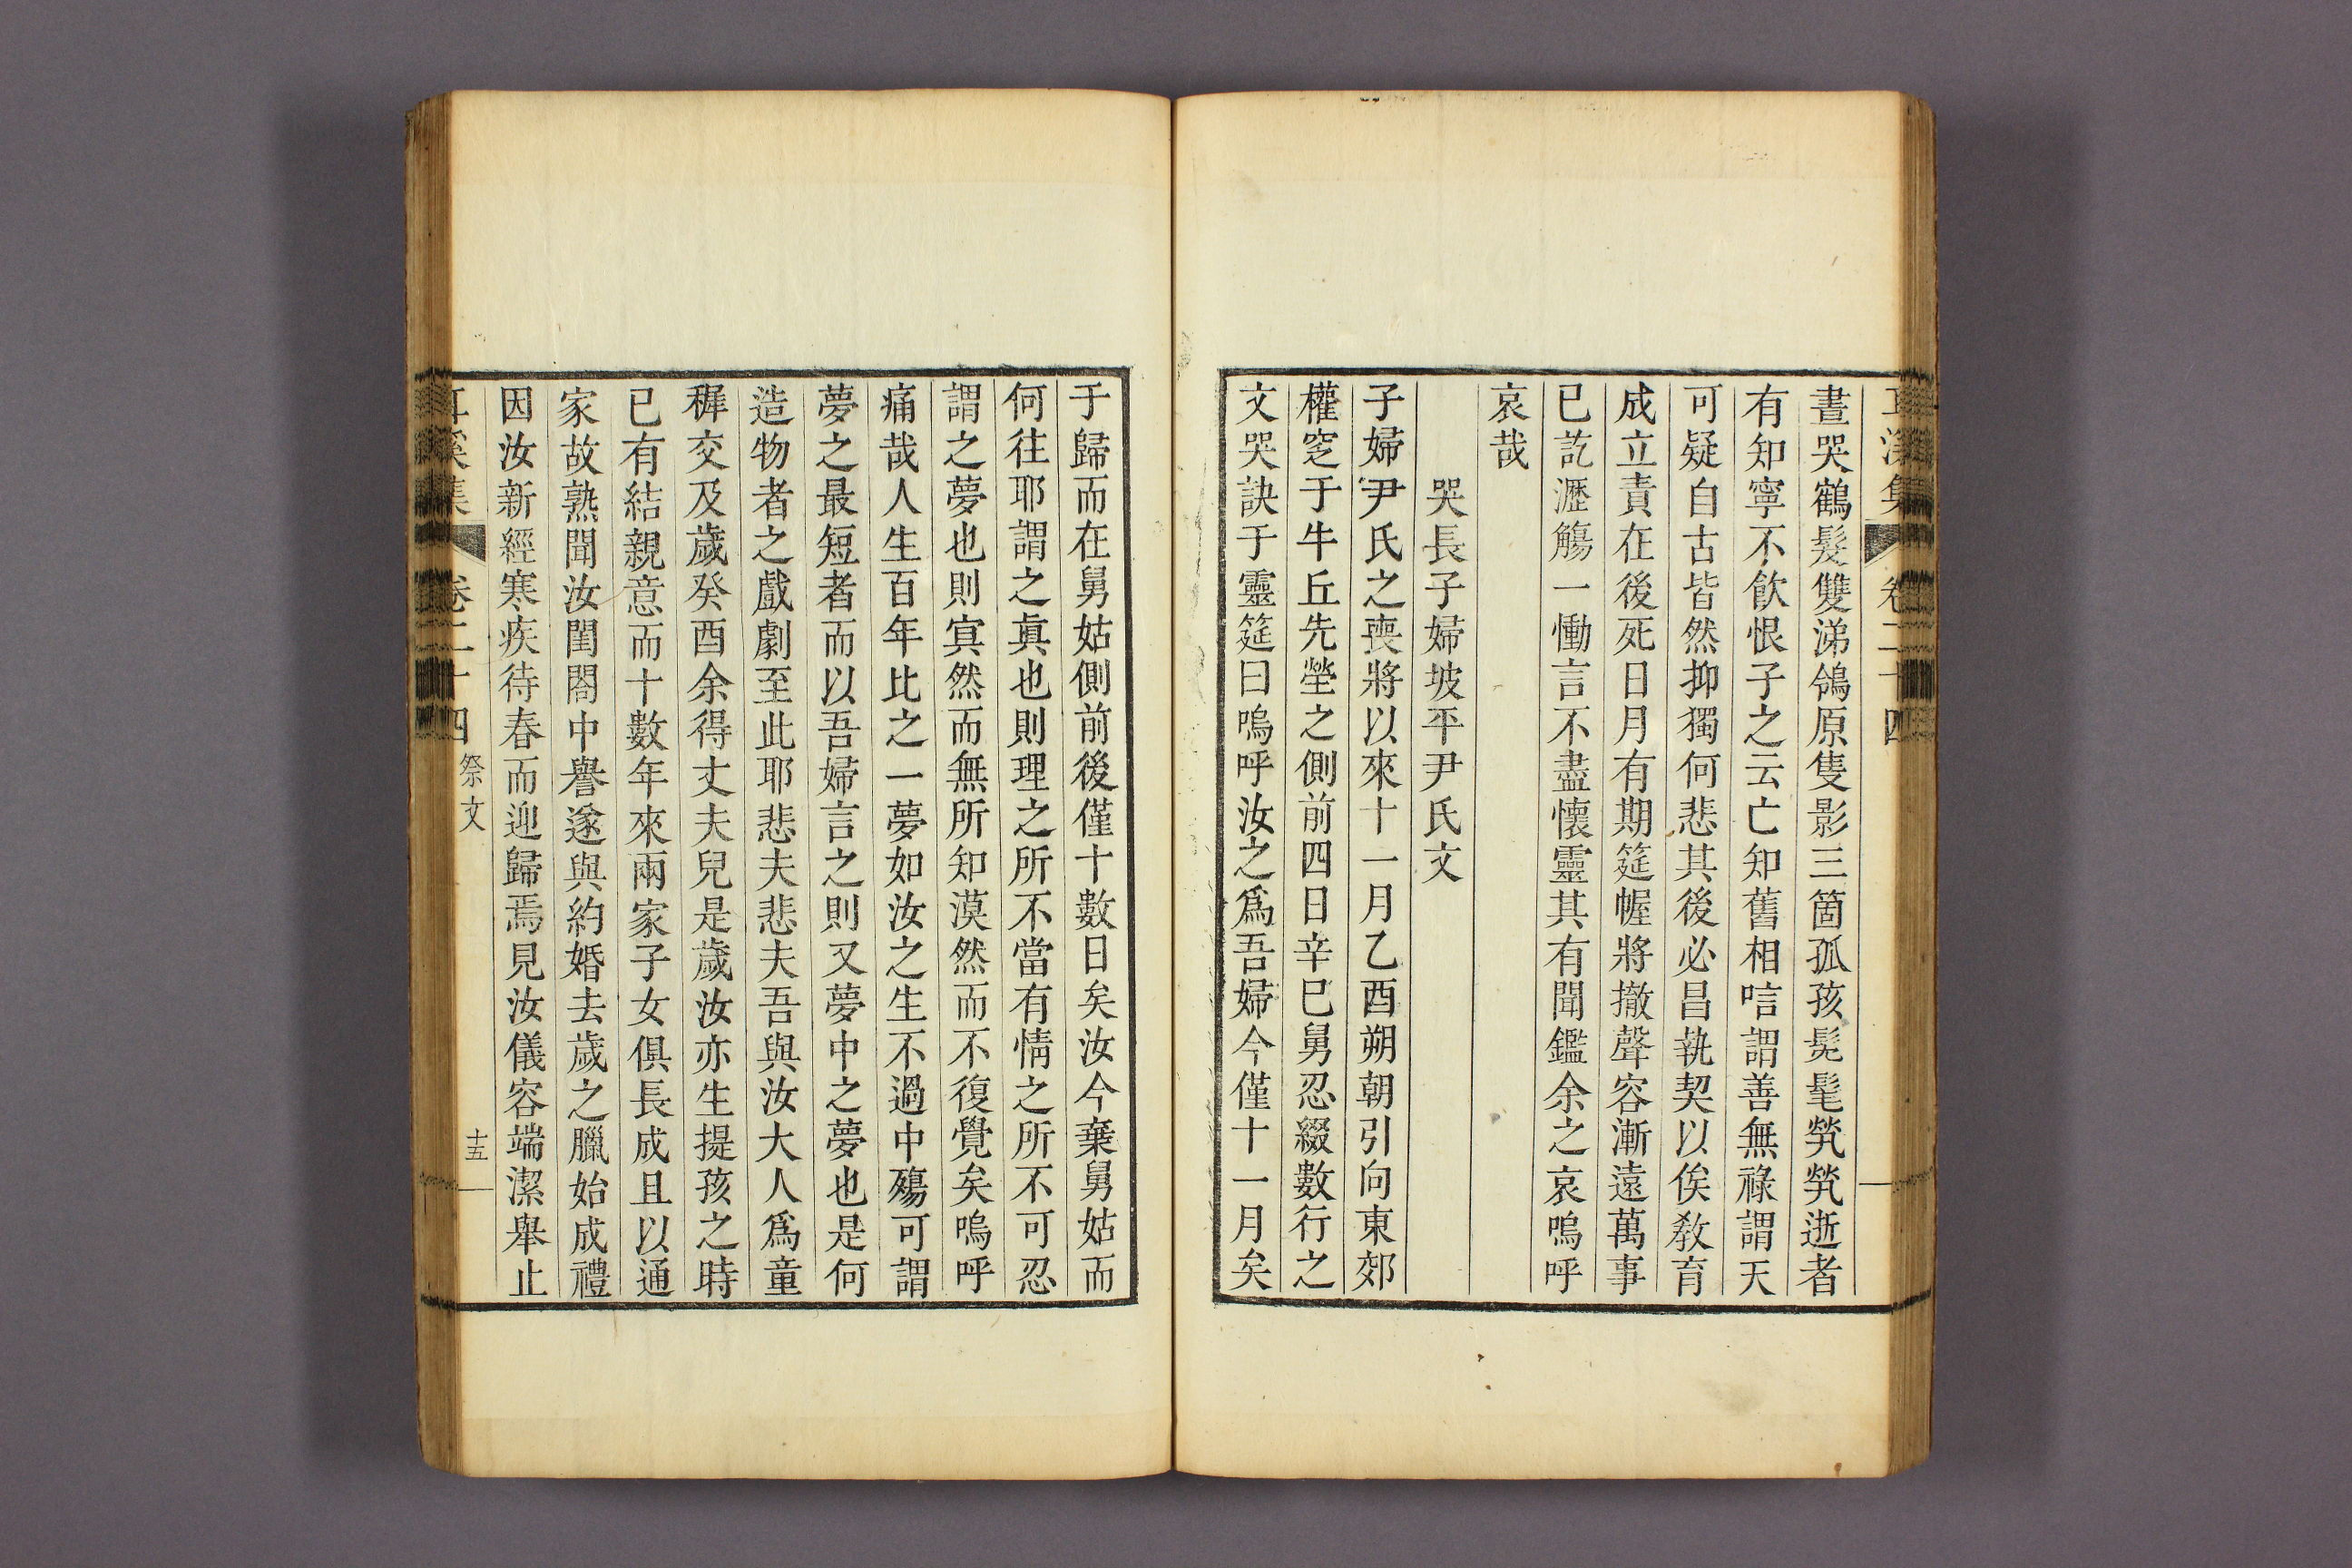 耳溪集 卷二十四
晝哭鶴髮雙涕鴒原隻影三箇孤孩髧髦煢煢逝者
有知寧不飮恨子之云亡知舊相唁謂善無祿謂天
可疑自古皆然抑獨何悲其後必昌執契以俟敎育
成立責在後死日月有期筵幄將撤聲容漸遠萬事
已訖瀝觴一慟言不盡懷靈其有聞鑑余之哀嗚呼
哀哉
哭長子婦坡平尹氏文
子婦尹氏之喪將以來十一月乙酉朔朝引向東郊
權窆于牛丘先塋之側前四日辛巳舅忍綴數行之
文哭訣于靈筵曰嗚呼汝之爲吾婦今僅十一月矣
于歸而在舅姑側前後僅十數日矣汝今棄舅姑而
何往耶謂之眞也則理之所不當有情之所不可忍
謂之夢也則冥然而無所知漠然而不復覺矣嗚呼
痛哉人生百年比之一夢如汝之生不過中殤可謂
夢之最短者而以吾婦言之則又夢中之夢也是何
造物者之戲劇至此耶悲夫悲夫吾與汝大人爲童
穉交及歲癸酉余得丈夫兒是歲汝亦生提孩之時
已有結親意而十數年來兩家子女俱長成且以通
家故熟聞汝閨閤中譽遂與約婚去歲之臘始成禮
因汝新經寒疾待春而迎歸焉見汝儀容端潔舉止
耳溪集 卷二十四 祭文 十五